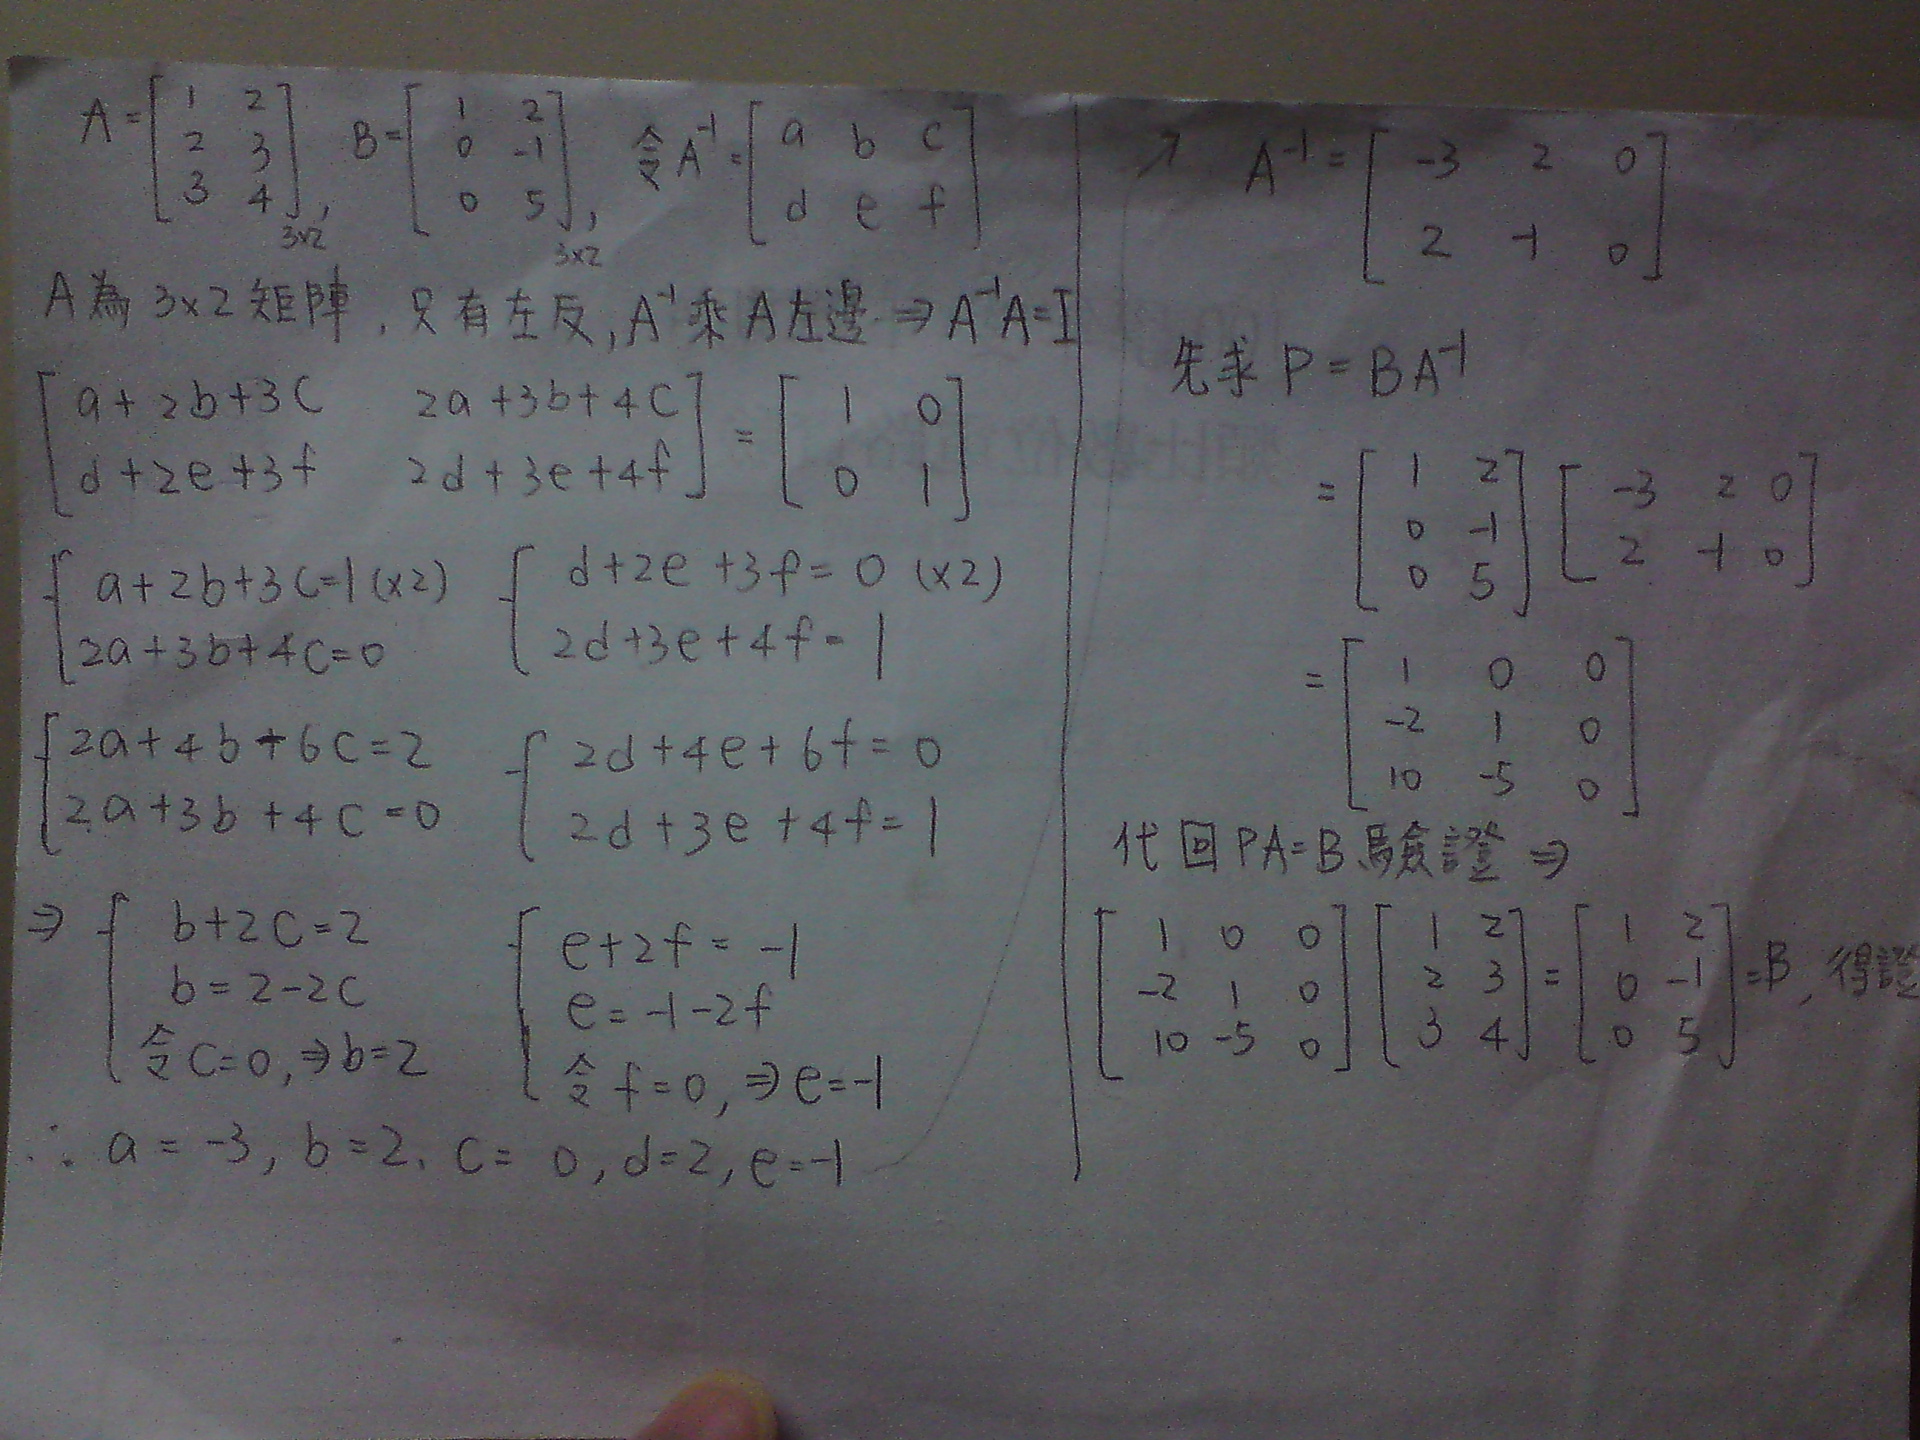 A = [1 2; 2 3; 3 4]3x2, B = [1 2; 0 -1; 0 5]3x2, 令 A⁻¹ = [a b c; d e f]
A 為 3x2 矩陣, 只有左反, A⁻¹ 乘 A 左邊 ⇒ A⁻¹A = I
[a+2b+3c 2a+3b+4c; d+2e+3f 2d+3e+4f] = [1 0; 0 1]
{ a+2b+3c=1 (x2) { d+2e+3f=0 (x2)
2a+3b+4c=0 2d+3e+4f=1
{ 2a+4b+6c=2 { 2d+4e+6f=0
2a+3b+4c=0 2d+3e+4f=1
⇒ { b+2c=2 { e+2f=-1
b=2-2c e=-1-2f
令 c=0, ⇒ b=2 令 f=0, ⇒ e=-1
∴ a=-3, b=2, c=0, d=2, e=-1
A⁻¹ = [-3 2 0; 2 -1 0]
先求 P = BA⁻¹
= [1 2; 0 -1; 0 5] [-3 2 0; 2 -1 0]
= [1 0 0; -2 1 0; 10 -5 0]
代回 PA=B 驗證 ⇒
[1 0 0; -2 1 0; 10 -5 0] [1 2; 2 3; 3 4] = [1 2; 0 -1; 0 5] = B, 得證